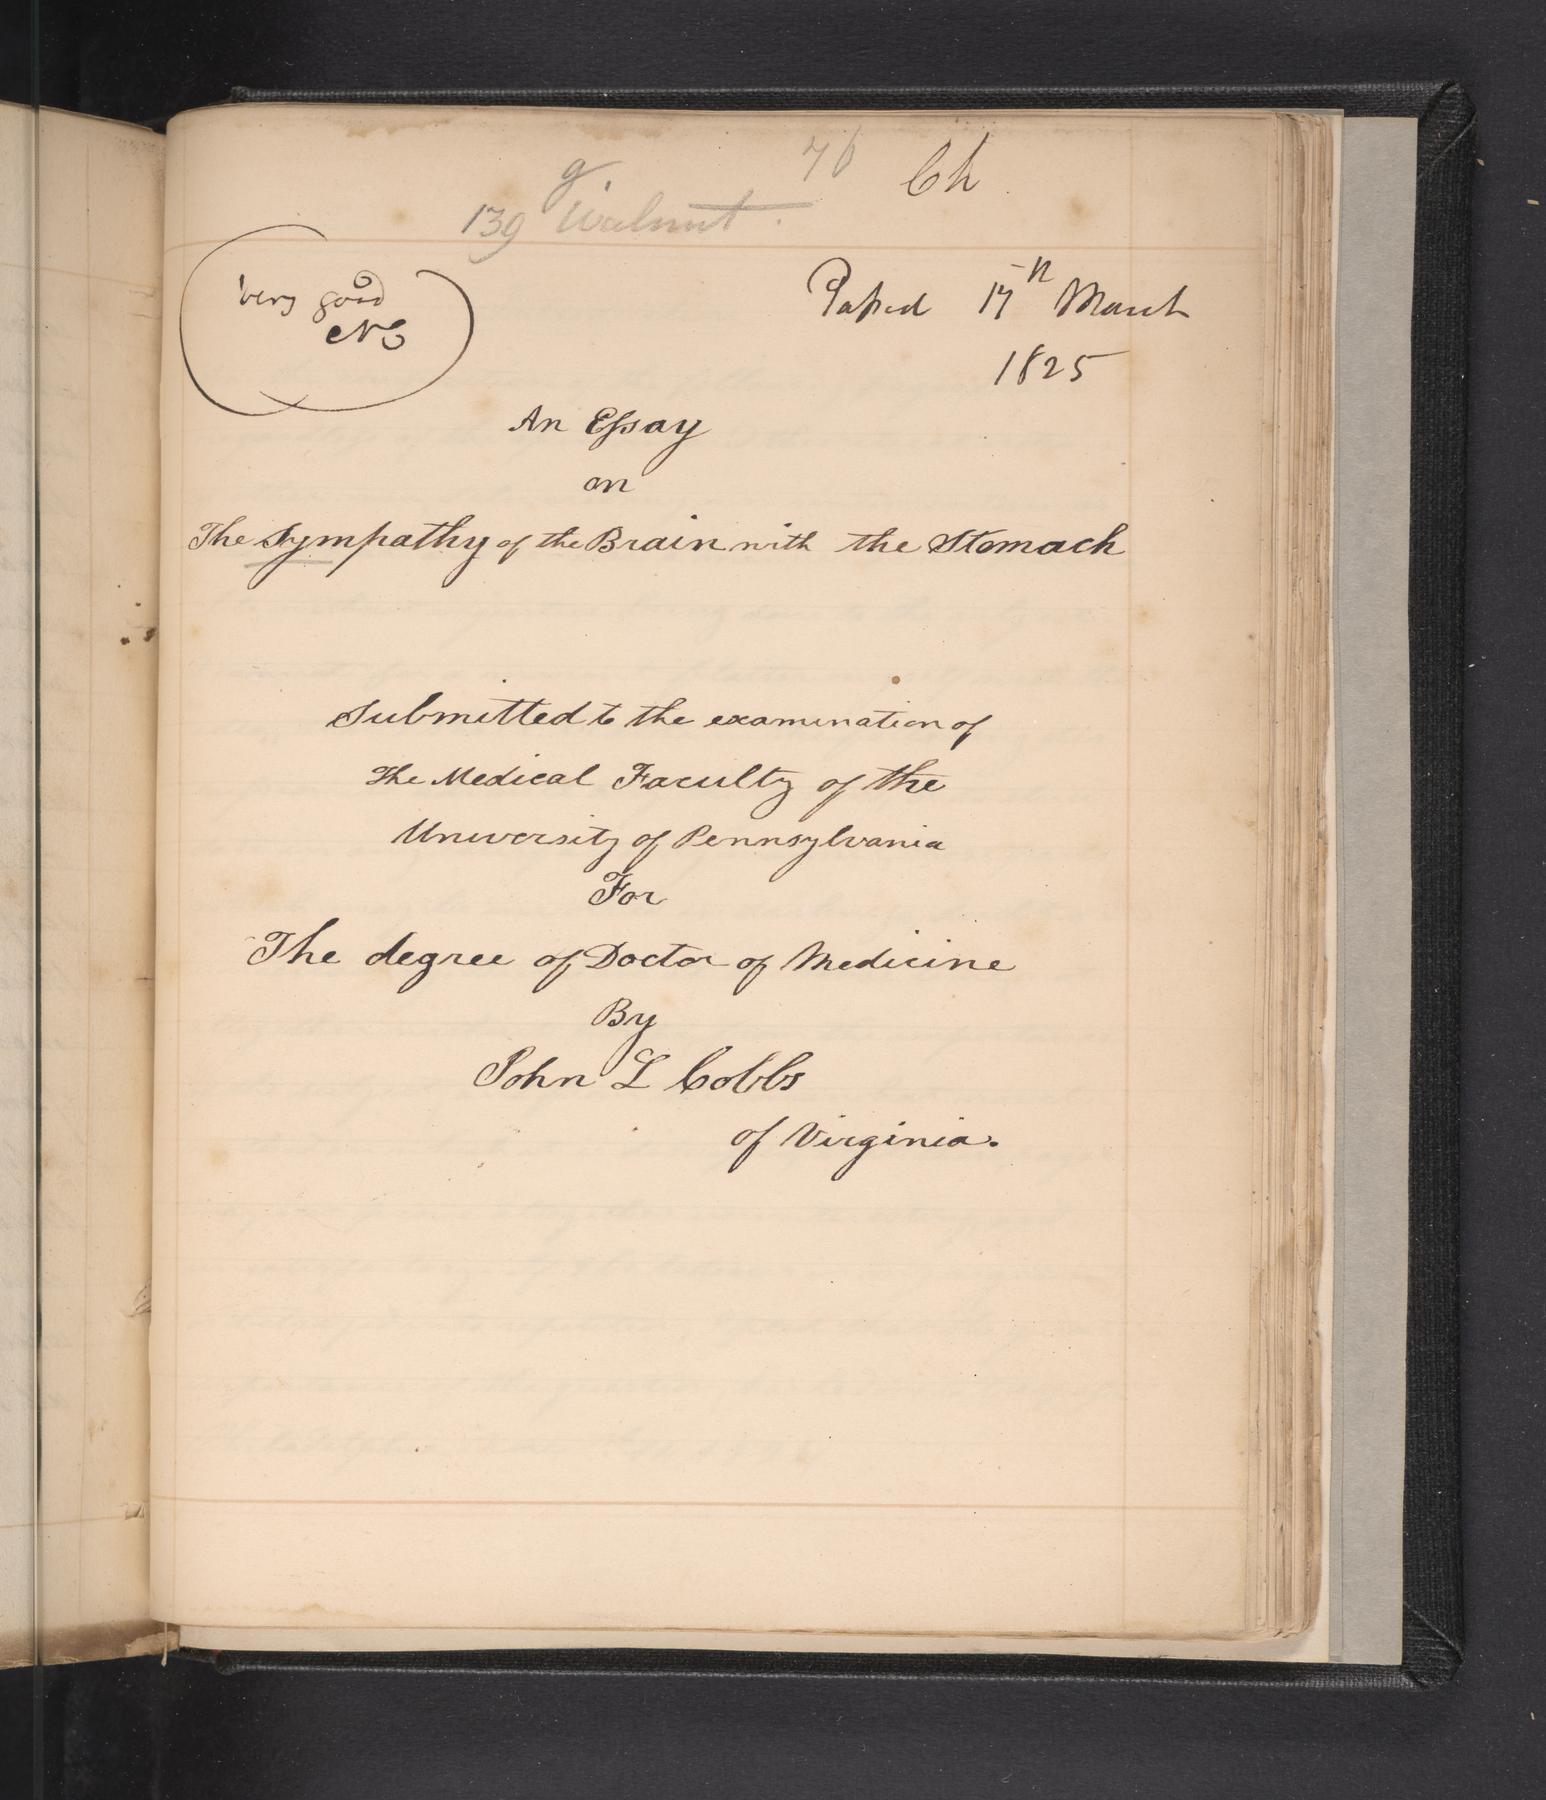 76 Ch
g.
139 Walnut.
very good
NC
Passed 17th March
1825
An Essay
on
The Sympathy of the Brain with the Stomach
Submitted to the examination of
The Medical Faculty of the
University of Pennsylvania
For
The degree of Doctor of Medicine
By
John L Cobbs
of Virginia.